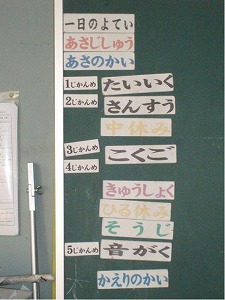 一日のよてい
あさじしゅう
あさのかい
1じかんめ たいいく
2じかんめ さんすう
中休み
3じかんめ こくご
4じかんめ
きゅうしょく
ひる休み
そうじ
5じかんめ 音がく
かえりのかい